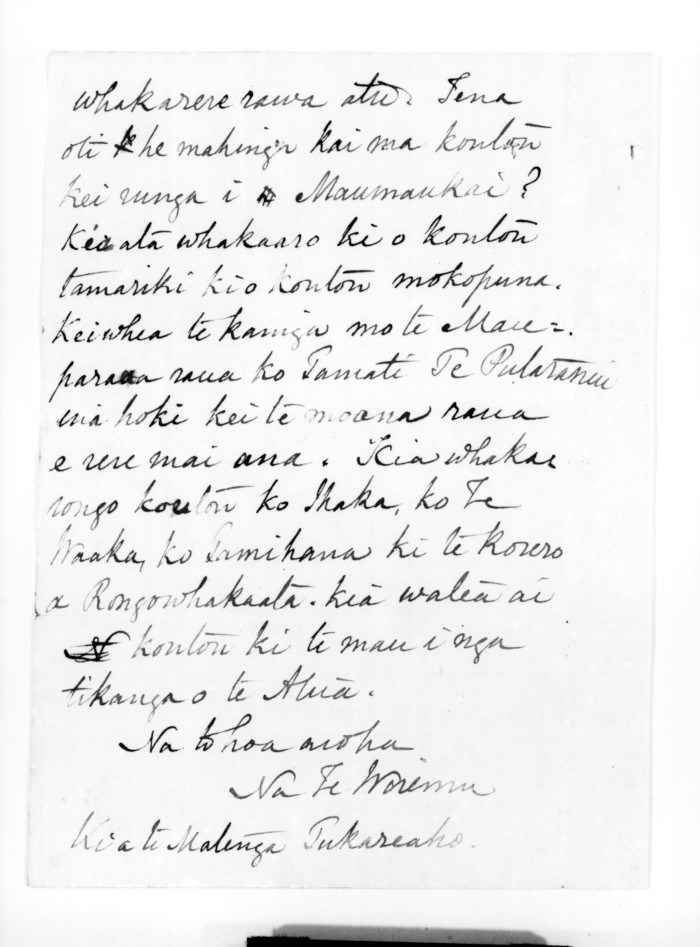 whakarere rawa atu. Tena
oti he mahinga kai ma koutou
kei runga i Maumaukai?
Kia ata whakaaro ki o koutou
tamariki ki o koutou mokopuna.
Kei whea te kainga mo te Mau=
paraoa raua ko Tamati Te
ina hoki kei te moana raua
e rere mai ana. Kia whaka=
rongo koutou ko Ihaka, ko Te
Waaka, ko Tamihana ki te korero
a Rongowhakaata. kia watea ai
koutou ki te mau i nga
tikanga o te Atua.
Na to hoa aroha
Na Te Wiremu
Ki a te Matenga Tukareaho.